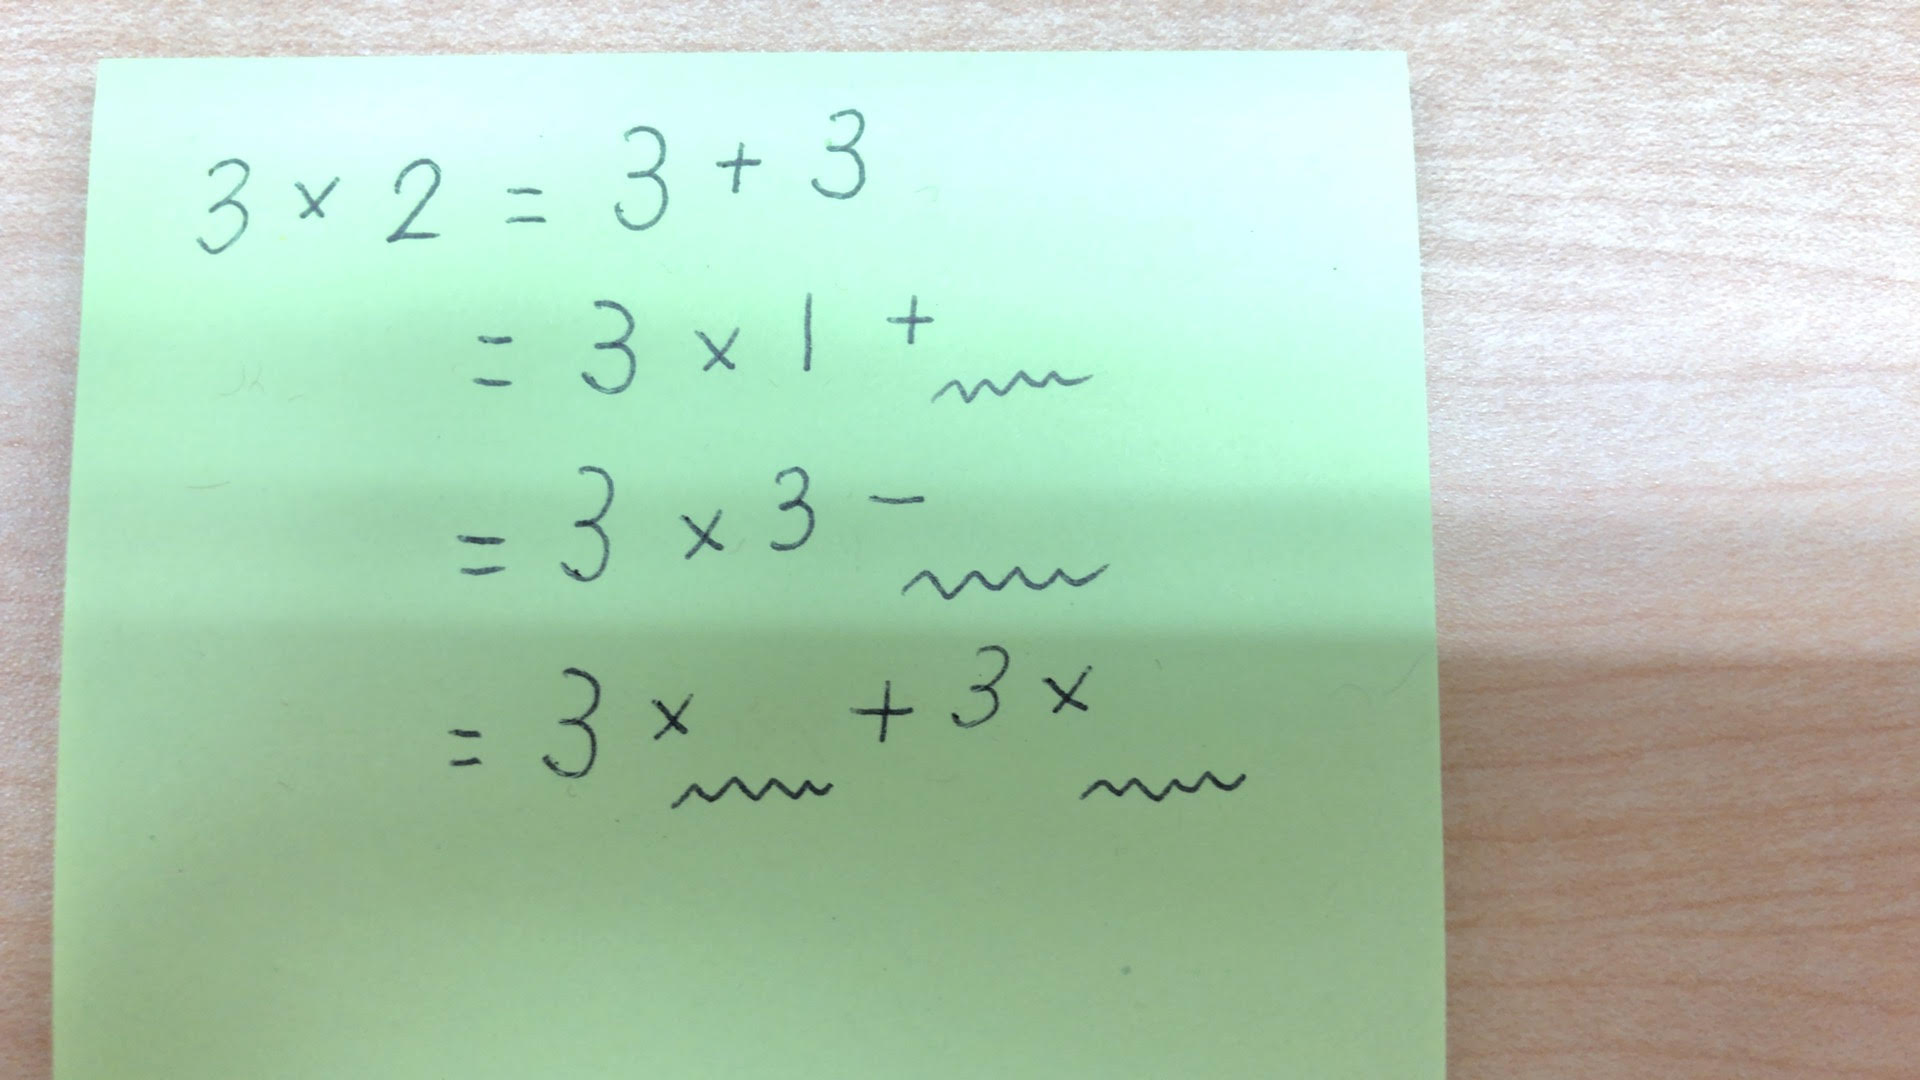 3 × 2 = 3 + 3
= 3 × 1 +
= 3 × 3 −
= 3 × + 3 ×